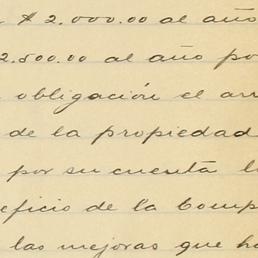 $ 2.000.00 al año
2.500.00 al año po
obligación el arr
de la propiedad
por su cuenta l
eficio de la Comp
las mejoras que ha